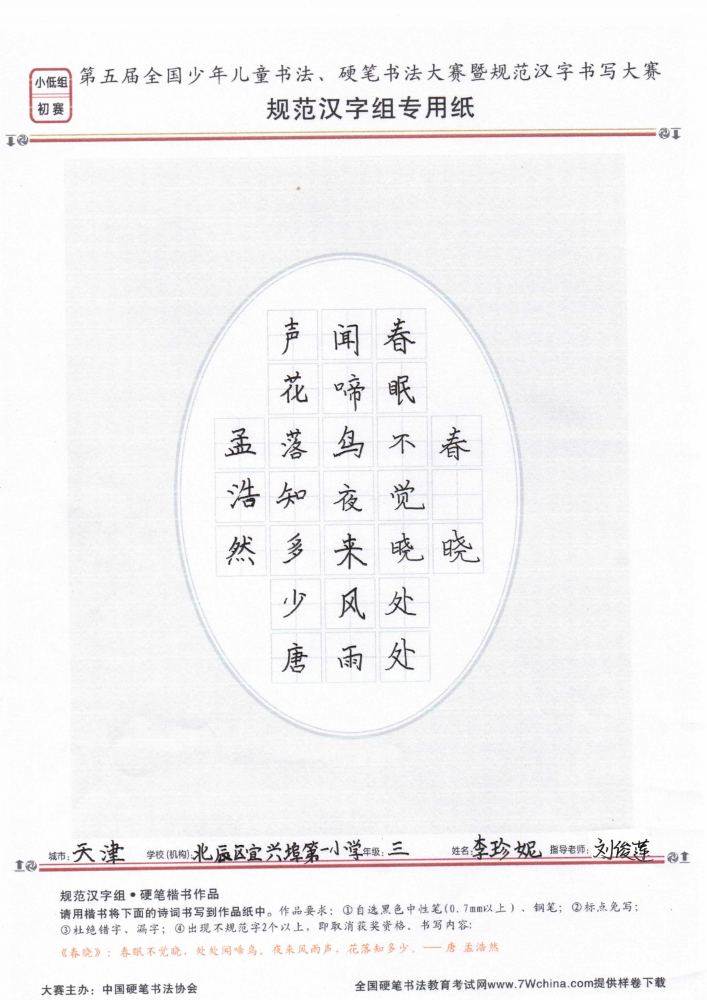 小低组
初赛
第五届全国少年儿童书法、硬笔书法大赛暨规范汉字书写大赛
规范汉字组专用纸
春晓
春眠不觉晓处处
闻啼鸟夜来风雨
声花落知多少唐
孟浩然
城市：天津 学校(机构)：北辰区宜兴埠第一小学 年级：三 姓名：李珍妮 指导老师：刘俊莲
规范汉字组•硬笔楷书作品
请用楷书将下面的诗词书写到作品纸中。作品要求：①自选黑色中性笔(0.7mm以上）、钢笔；②标点免写；
③杜绝错字、漏字；④出现不规范字2个以上，即取消获奖资格。书写内容：
《春晓》：春眠不觉晓，处处闻啼鸟。夜来风雨声，花落知多少。——唐 孟浩然
大赛主办：中国硬笔书法协会
全国硬笔书法教育考试网www.7Wchina.com提供样卷下载